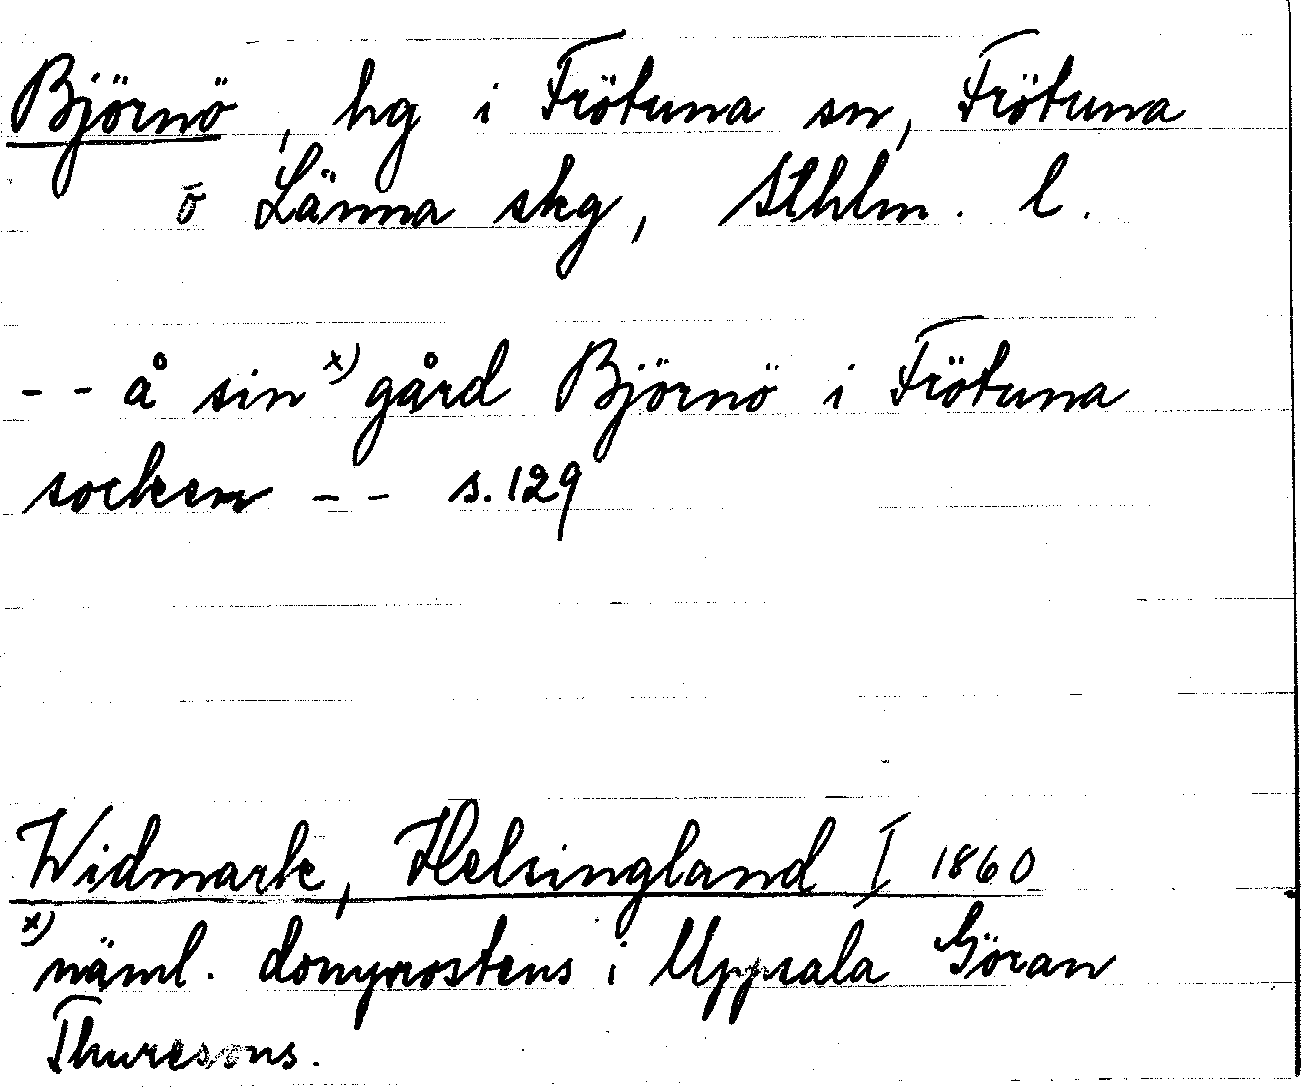 Björnö, hg i Frötuna sn, Frötuna
o Länna skg, Sthlm. l.
- - å sin x) gård Björnö i Frötuna
socken - - s. 129
Widmark, Helsingland I 1860
x) näml. domprostens i Uppsala Göran
Thuresons.